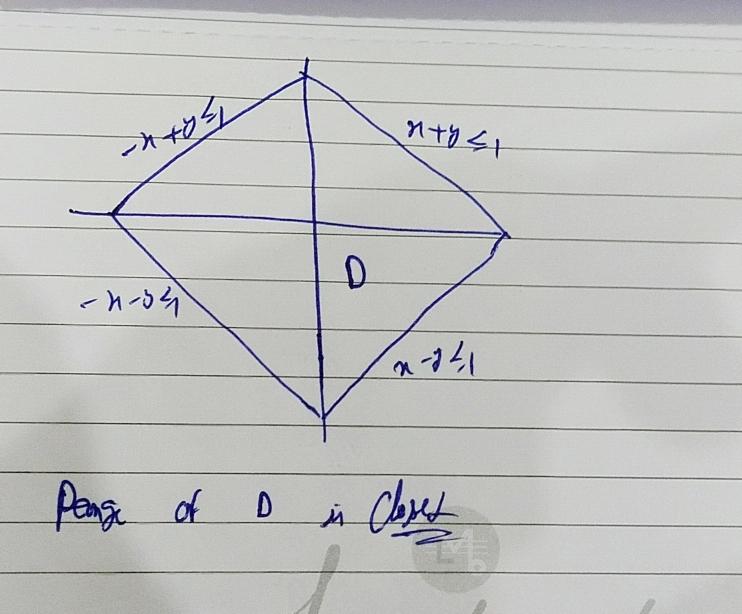 -x+y≤1
x+y≤1
D
-x-y≤1
x-y≤1
Range of D is Closed